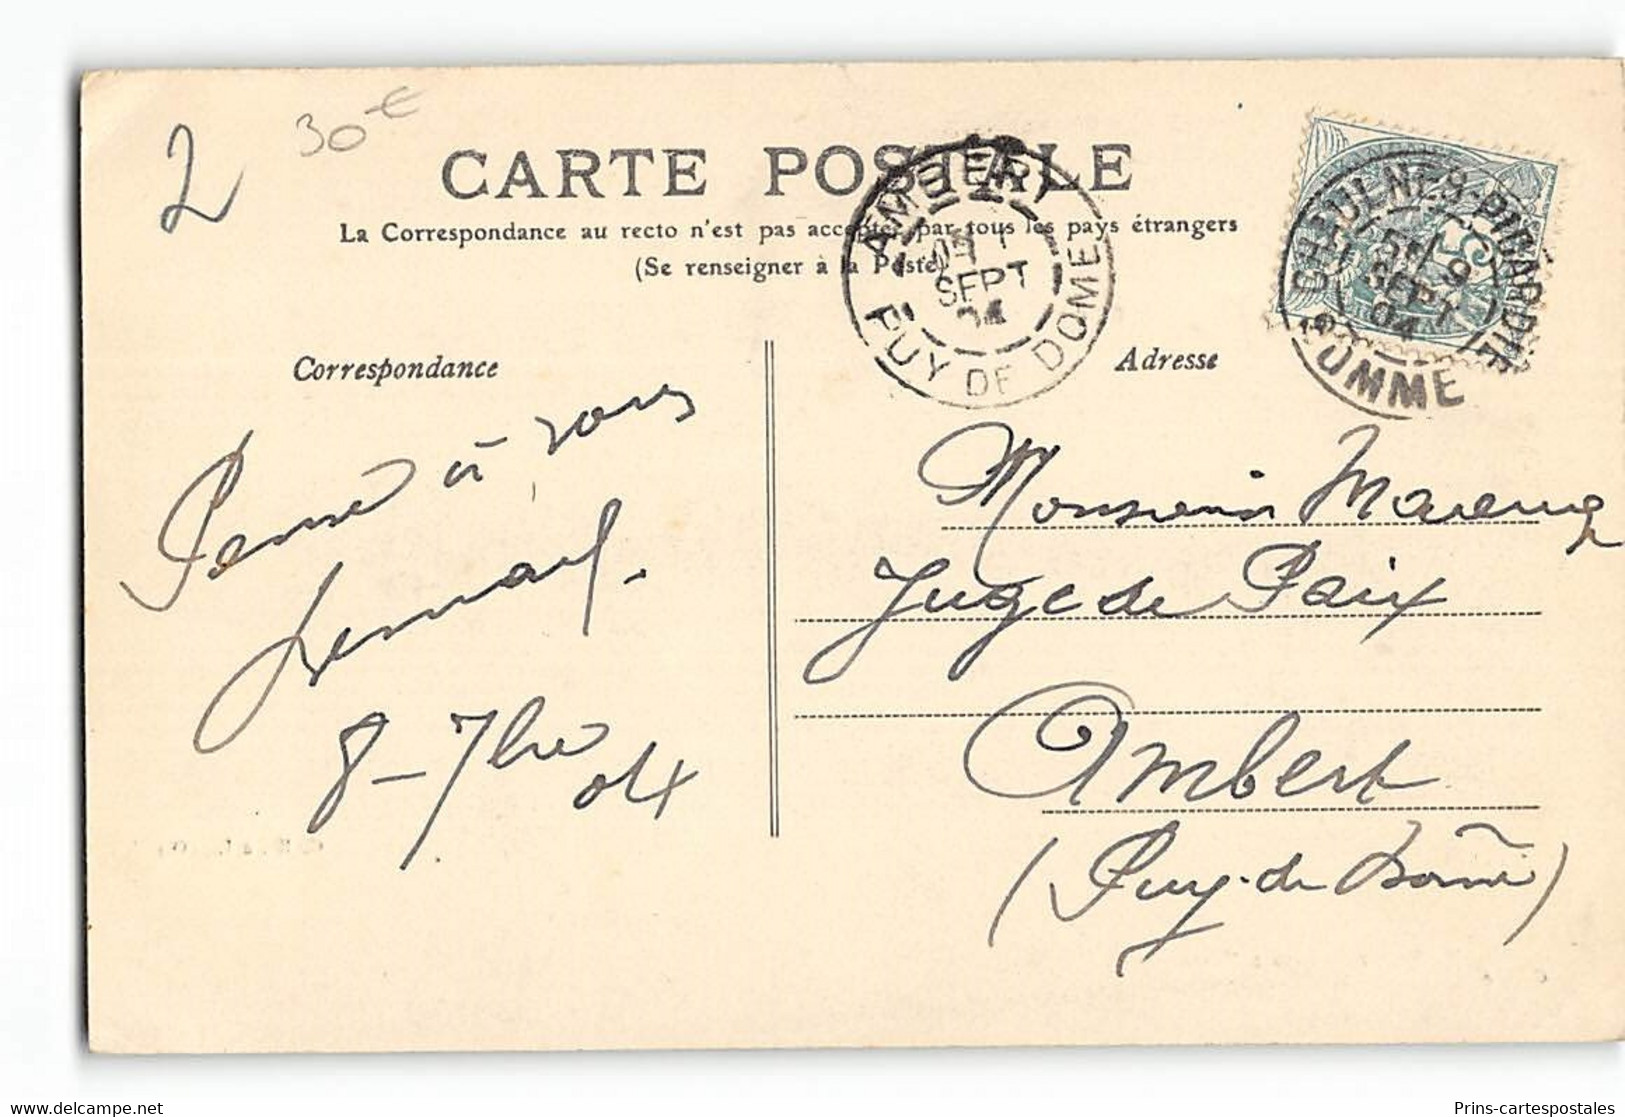 2
30 €
CARTE POSTALE
La Correspondance au recto n'est pas acceptée par tous les pays étrangers
(Se renseigner à la Poste)
AMBERT
SEPT
04
PUY DE DOME
CHAULNES-PICARDIE
9
SEPT
04
SOMME
5
Correspondance
Adresse
Pensé à vous
8 - 7bre
04
Monsieur
Juge de Paix
Ambert
(Puy-de-Dôme)
delcampe.net
Prins-cartespostales